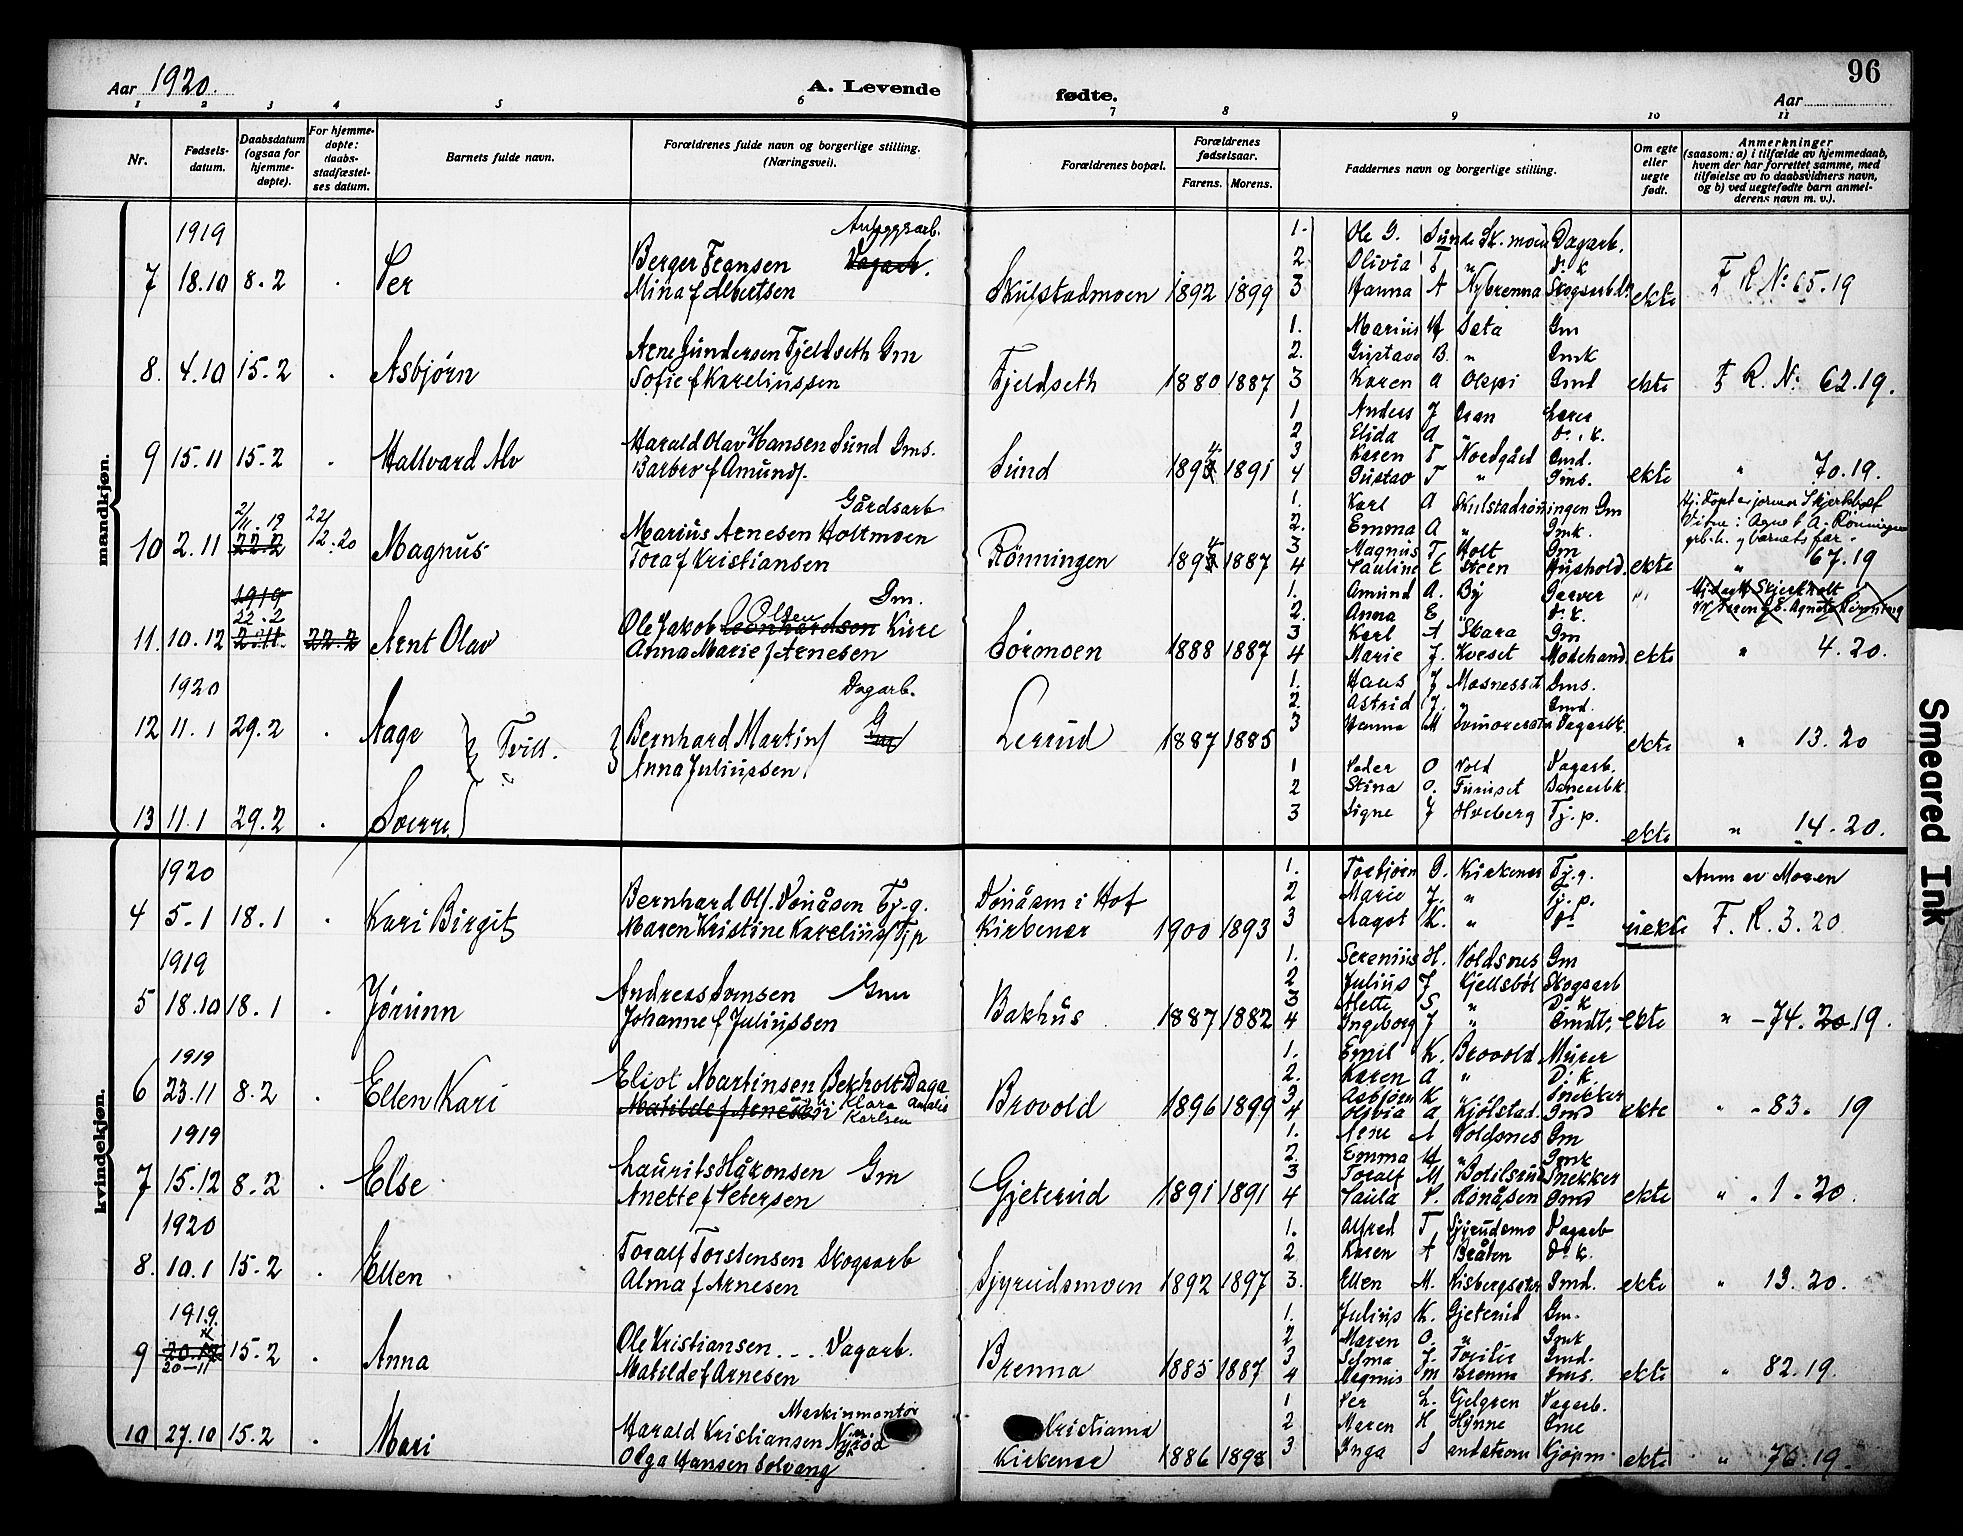 Aar 1920. A. Levende fødte. Aar 96
1 2 3 4 5 6 7 8 9 10 11
Nr. Fødsels-datum. Daabsdatum (ogsaa for hjemme-døpte). For hjemme-døpte: daabs-stadfæstel-ses datum. Barnets fulde navn. Forældrenes fulde navn og borgerlige stilling. (Næringsvei). Forældrenes bopæl. Forældrenes fødselsaar. Farens. Morens. Faddernes navn og borgerlige stilling. Om egte eller uegte født. Anmerkninger (saasom: a) i tilfælde av hjemmedaab, hvem der har forrettet samme, med tilføielse av to daabsvidners navn, og b) ved uegtefødte barn anmel-derens navn m. v.).
mandkjøn.
1919 Anleggsarb. 1. Ole G. Sunde Sk.moen Dagarb.
Berger Fransen Dagarb. 2. Olivia T " D. k
7 18.10 8.2 Per Mina f Albertsen Skulstadmoen 1892 1899 3 Hanna A Nybrenna ekte F R No 65.19
1. Marius H Sæta Gm
Arne Gundersen Fjeldseth Gm 2. Gustava B. " Gmk
8. 4.10 15.2 Asbjørn Sofie f Kareliussen Fjeldseth 1880 1887 3 Karen A Oleppi Gmd ekte F R. No 62.19.
1 Anders J Gran Lærer
2 Elida A " D. k.
Harald Olav Hansen Sund Gms. 3 Karen T Nordgård Gmd.
9 15.11 15.2 Hallvard Alv Barbro f Amunds. Sund 1894 1891 4 Gustav T " Gms. ekte " 70.19.
Gårdsarb 1. Karl A Skulstadrøningen Gm
2/11.19 22/12.20 Marius Arnesen Holtmoen 2. Emma A " Gmk.
22.2 3. Magnus T Holt Gm
10 2.11 Magnus Tora f Kristiansen Rønningen 1894 1887 4 Pauline E Steen Hushold. ekte " 67.19
1919 Gm. 1. Amund A. By Garver
22.2 Ole Jakob Leonhardsen Olsen Kure 2. Anna E " D. k.
3 Karl A Skara Gm
11. 10.12 2.11. 22.2 Arnt Olav Anna Marie f Arnesen Sørmoen 1888 1887 4 Marie J. Kveset Modehand. ekte " 4.20.
1920 Dagarb. 1. Hans J Masnesset Gms.
2 Astrid J. " Gmd.
12 11.1 29.2 Aage Tvill. Bernhard Martins Gm Lerrud 1887 1885 3 Hanna M Dagarbk. ekte " 13.20
Anna Juliussen 1 Peder O Vold Dagarb.
2 Stina O. Furuset Banearbk.
13 11.1 29.2 Sverre " 3 Signe J Hveberg Tj.p. ekte " 14.20.
kvindekjøn.
1920 1. Torbjørn G. Kirkenær Tj.g. Anm av Moren
Bernhard Ols. Vonåsen Tj.g. Vonåsen i Hof 2 Marie J. " Tj.p.
4 5.1 18.1 Kari Birgit Maren Kristine Karelius Tj p Kirkenær 1900 1893 3 Aagot K. " D. uekte F. R. 3.20
1919 1. Serenius H. Voldsnes Gm
Andreas Tomsen Gm 2 Julius J Kjellsbøl Skogsarb
3 Mette S " D. K
5 18.10 18.1 Jørunn Johanne f Juliussen Bakhus 1887 1882 4 Ingeborg J " Gmdt. ekte " -74.20 19.
1919 1. Emil K. Brovold Murer
Eliot Martinsen Bekholt Daga 2. Karen A " D. K.
6 23.11 8.2 Ellen Kari Matilde f Arnesen Klara Amalie Karlsen Brovold 1896 1899 3 Asbjørn K " Snekker
4 Olivia A Kjølstad Gmd ekte " " 83. 19
1919 1. Arne A Voldsnes Gm
Laurits Håkonsen Gm 2. Emma H " Gmk
3 Toralf M Botilsrud Snekker
7 15.12 8.2 Else Anette f Petersen Gjeterud 1891 1891 4 Paula P. Rønåsen Gmd ekte " .1.20.
1920 1. Alfred T Sjyrudsmo Dagarb
Toralf Torstensen Skogsarb 2. Karen A Bråten D. k.
8. 10.1 15.2 Ellen Alma f Arnesen Sjyrudsmoen 1892 1897 3. Ellen M. Kisbergsæter Gmd. ekte " 13.20.
1919. 1. Julius K. Gjeterud Gm.
Ole Kristiansen Dagarb. 2 Maren O. " Gmk
3 Selma J. Gmd.
9 20-11 15.2 Anna Matilde f Arnesen Brenna 1885 1887 4 Magnus M Brenna Gms. ekte " 82.19.
Maskinmontør 1 Per L. Gjelgren Dagarb.
Harald Kristiansen Nyrød Kristiania 2. Maren H Hynne Ene
10 27.10 15.2 Mari Olga Hansen Solvang Kirkenær 1886 1898 3 Inga Sandstrøm Kjøpm. ekte " 76.19.
Smeared Ink